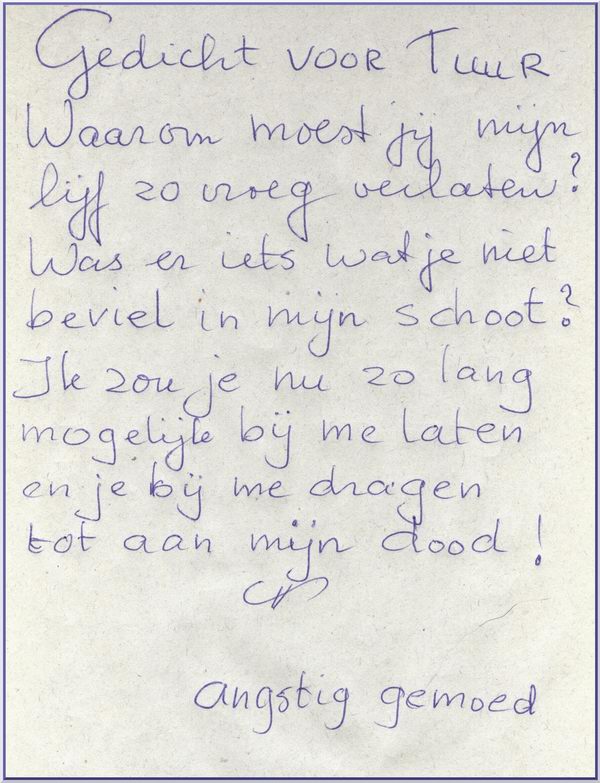 Gedicht voor Tuur
Waarom moest jij mijn
lijf zo vroeg verlaten?
Was er iets wat je niet
beviel in mijn schoot?
Ik zou je nu zo lang
mogelijk bij me laten
en je bij me dragen
tot aan mijn dood!
angstig gemoed